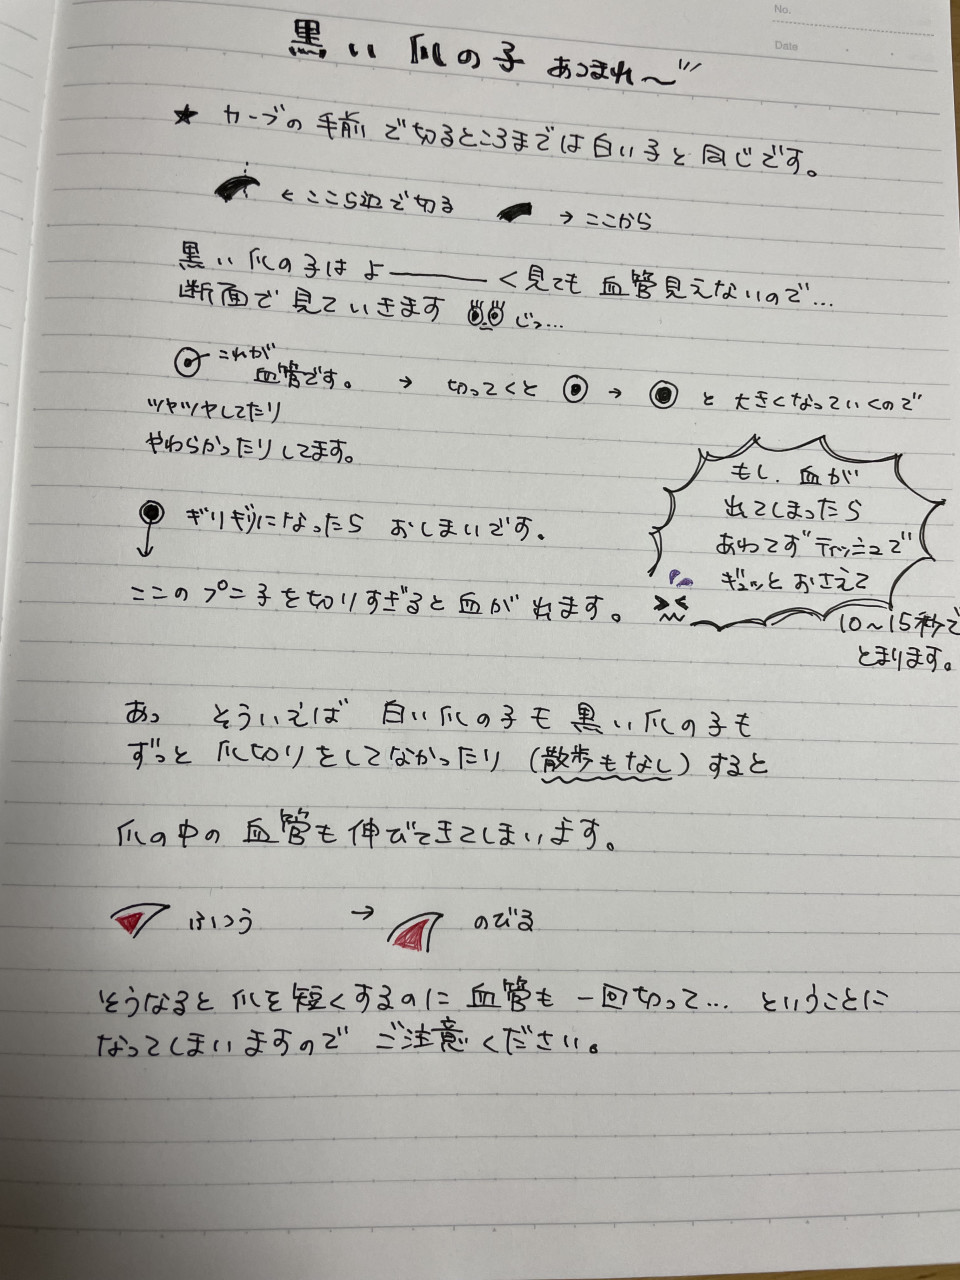 No.
Date
黒い爪の子 あつまれ〜
★ カーブの手前で切るところまでは白い子と同じです。
← ここら辺で切る → ここから
黒い爪の子は よ――く見ても 血管見えないので…
断面で見ていきます じっ…
これが
血管です。 → 切ってくと → と大きくなっていくので
ツヤツヤしてたり
やわらかったりしてます。
もし、血が
出てしまったら
あわてずティッシュで
ギュッとおさえて
10〜15秒で
とまります。
ギリギリになったら おしまいです。
ここのプニ子を切りすぎると血がでます。
あっ そういえば 白い爪の子も 黒い爪の子も
ずっと 爪切りをしてなかったり (散歩もなし) すると
爪の中の 血管も伸びてきてしまいます。
ふつう → のびる
そうなると 爪を短くするのに 血管も 一回切って… ということに
なってしまいますので ご注意ください。